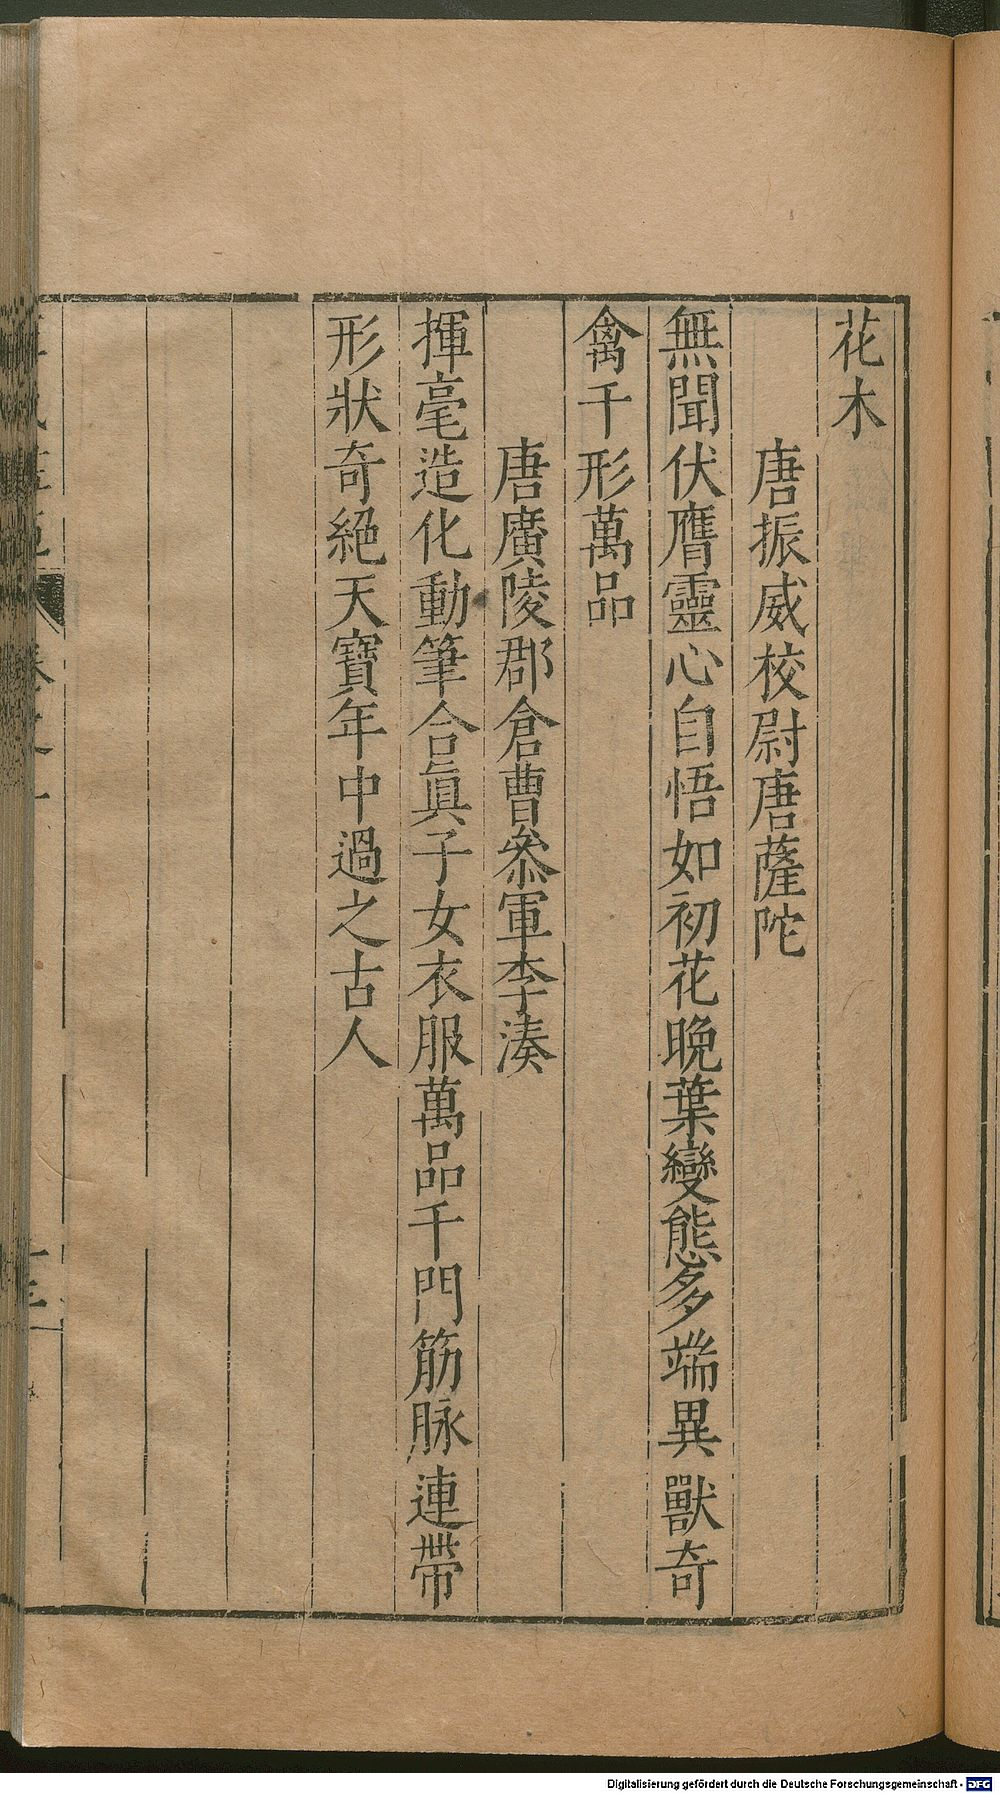 花木
唐振威校尉唐薩陀
無聞伏膺靈心自悟如初花晚葉變態多端異獸奇
禽千形萬品
唐廣陵郡倉曹叅軍李湊
揮毫造化動筆合眞子女衣服萬品千門筋脉連帶
形狀奇絕天寶年中過之古人
卷之一
Digitalisierung gefördert durch die Deutsche Forschungsgemeinschaft - DFG